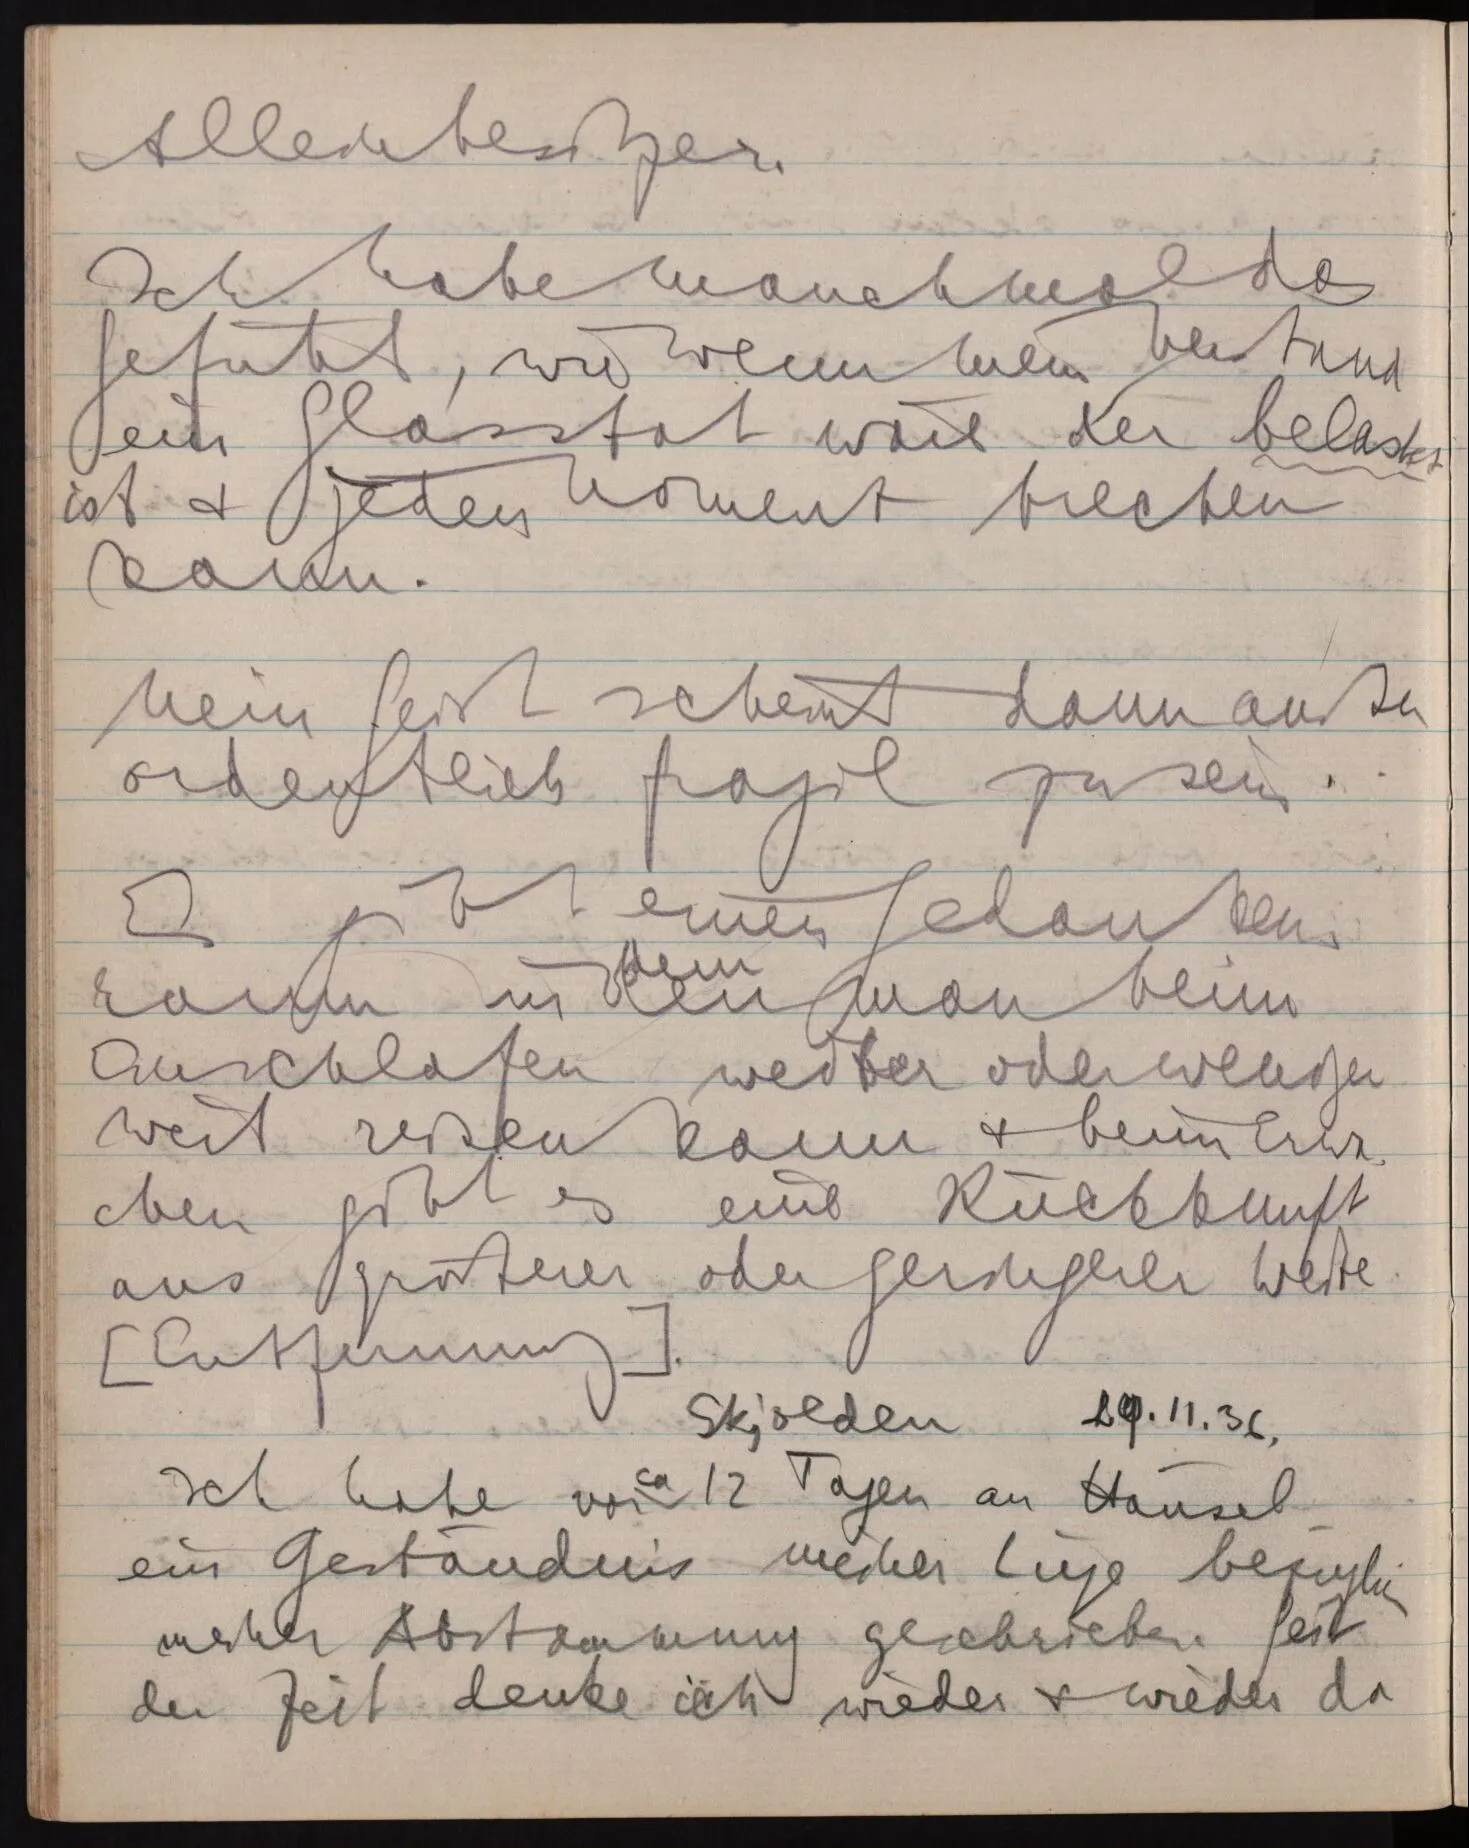 Alleinbesitzer.
Ich habe manchmal das
Gefühl, wie wenn mein Verstand
ein Glasstab wäre der belastet
ist & jeden Moment brechen
kann.
Mein Geist scheint dann außer
ordentlich fragil zu sein.
Es gibt einen Gedanken
raum in dem man beim
Einschlafen weiter oder weniger
weit reisen kann & beim Erwa
chen gibt es eine Rückkunft
aus größerer oder geringerer Weite
[Entfernung].
Skjolden 11.36.
Ich habe vor ca 12 Tagen an Hänsel
ein Geständnis meiner Lüge bezüglich
meiner Abstammung geschrieben. Seit
der Zeit denke ich wieder & wieder da